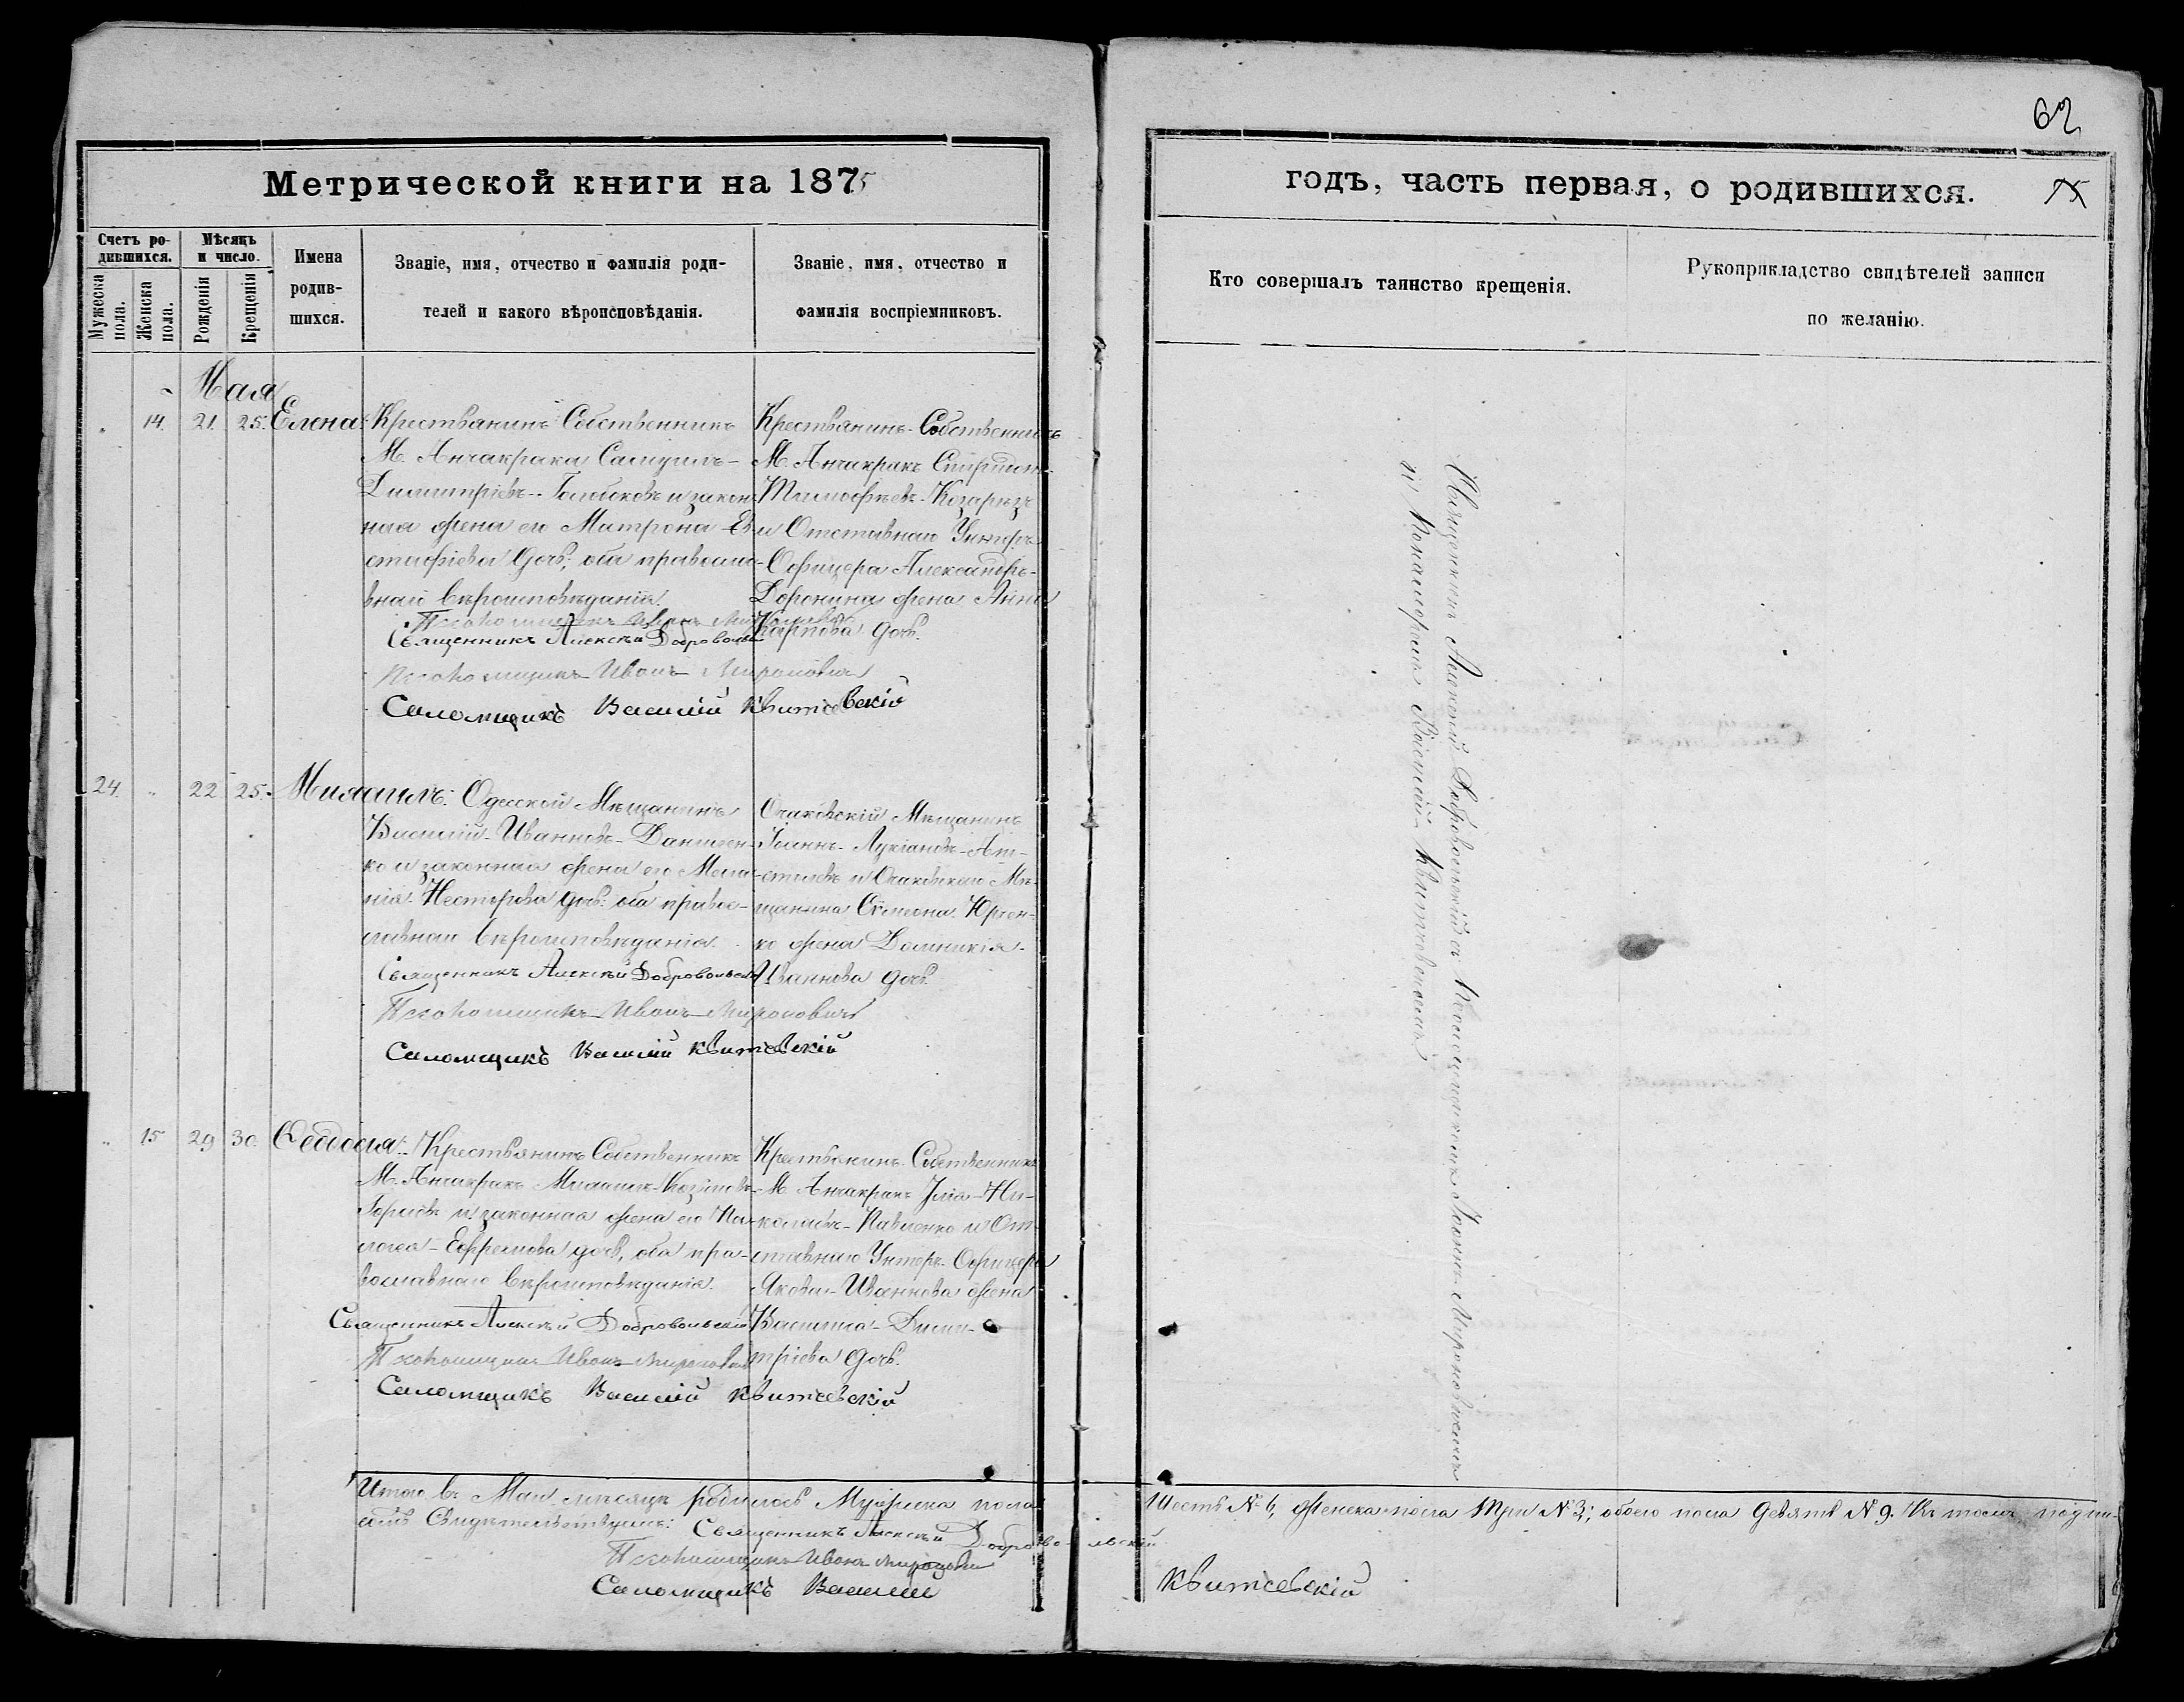 62
Метрической книги на 1875
годъ, часть первая, о родившихся.
Счетъ родившихся.
Мужеска пола.
Женска пола.
Мѣсяцъ и число.
Рожденія
Крещенія
Имена родившихся.
Званіе, имя, отчество и фамилія роди-
телей и какого вѣроисповѣданія.
Званіе, имя, отчество и
фамилія воспріемниковъ.
Кто совершалъ таинство крещенія.
Рукоприкладство свидѣтелей записи
по желанію.
Мая
14. 21. 25. Елена
Крестьянинъ Собственникъ
М. Анчакрака Самуилъ-
Димитріевъ- и закон-
ная жена его Матрона Ев-
стафіева дочь; оба правосла-
внаго вѣроисповѣданія.
Священникъ Алексѣй Добровольскій
Псаломщикъ Иванъ Мироновичъ
Саломщикъ Василій Квитковскій
Крестьянинъ-Собственникъ
М. Анчакракъ Спиридонъ
Тимофѣевъ-
и Отставнаго Унтеръ
Офицера Александръ-
Доронина жена Анна
Карпова дочь.
24. 22 25. Михаилъ:
Одесскій Мѣщанинъ
Василій-Ивановъ-Данилен-
ко и законная жена его Мела-
нія-Несторова дочь: оба право-
славнаго вѣроисповѣданія.
Священникъ Алексѣй Добровольскій
Псаломщикъ Иванъ Мироновичъ
Саломщикъ Василій Квитковскій
Очаковскій Мѣщанинъ
Іоаннъ-Лукіановъ-
и Очаковскаго Мѣ-
щанина Симеона
ко жена Домникія-
Иваннова дочь.
15 29 30. Ѳеодосія:
Крестьянинъ Собственникъ
М. Анчакракъ Михаилъ-
и законная жена его Пе-
лагея-Ефремова дочь, оба пра-
вославнаго вѣроисповѣданія.
Священникъ Алексѣй Добровольскій
Псаломщикъ Иванъ Мироновичъ
Саломщикъ Василій Квитковскій
Крестьянинъ-Собственникъ
М. Анчакракъ Илія-Ни-
колаевъ-Павленко и От-
ставнаго Унтеръ-Офицера
Якова-Иваннова жена
Василиса-Дими-
тріева дочь.
Священникъ Алексей Добровольскій съ Псаломщикомъ Іоаннъ Мироновичемъ
и Пономаремъ Василій-Квитковскимъ
Итого въ Маѣ мѣсяцѣ родилось Мужеска пола
Шесть № 6, Женска-пола Три № 3; обоего пола Девять № 9. Въ томъ подпи-
сомъ Свидѣтельствуемъ: Священникъ Алексѣй Добровольскій
Псаломщикъ Иванъ Мироновичъ
Саломщикъ Василій Квитковскій